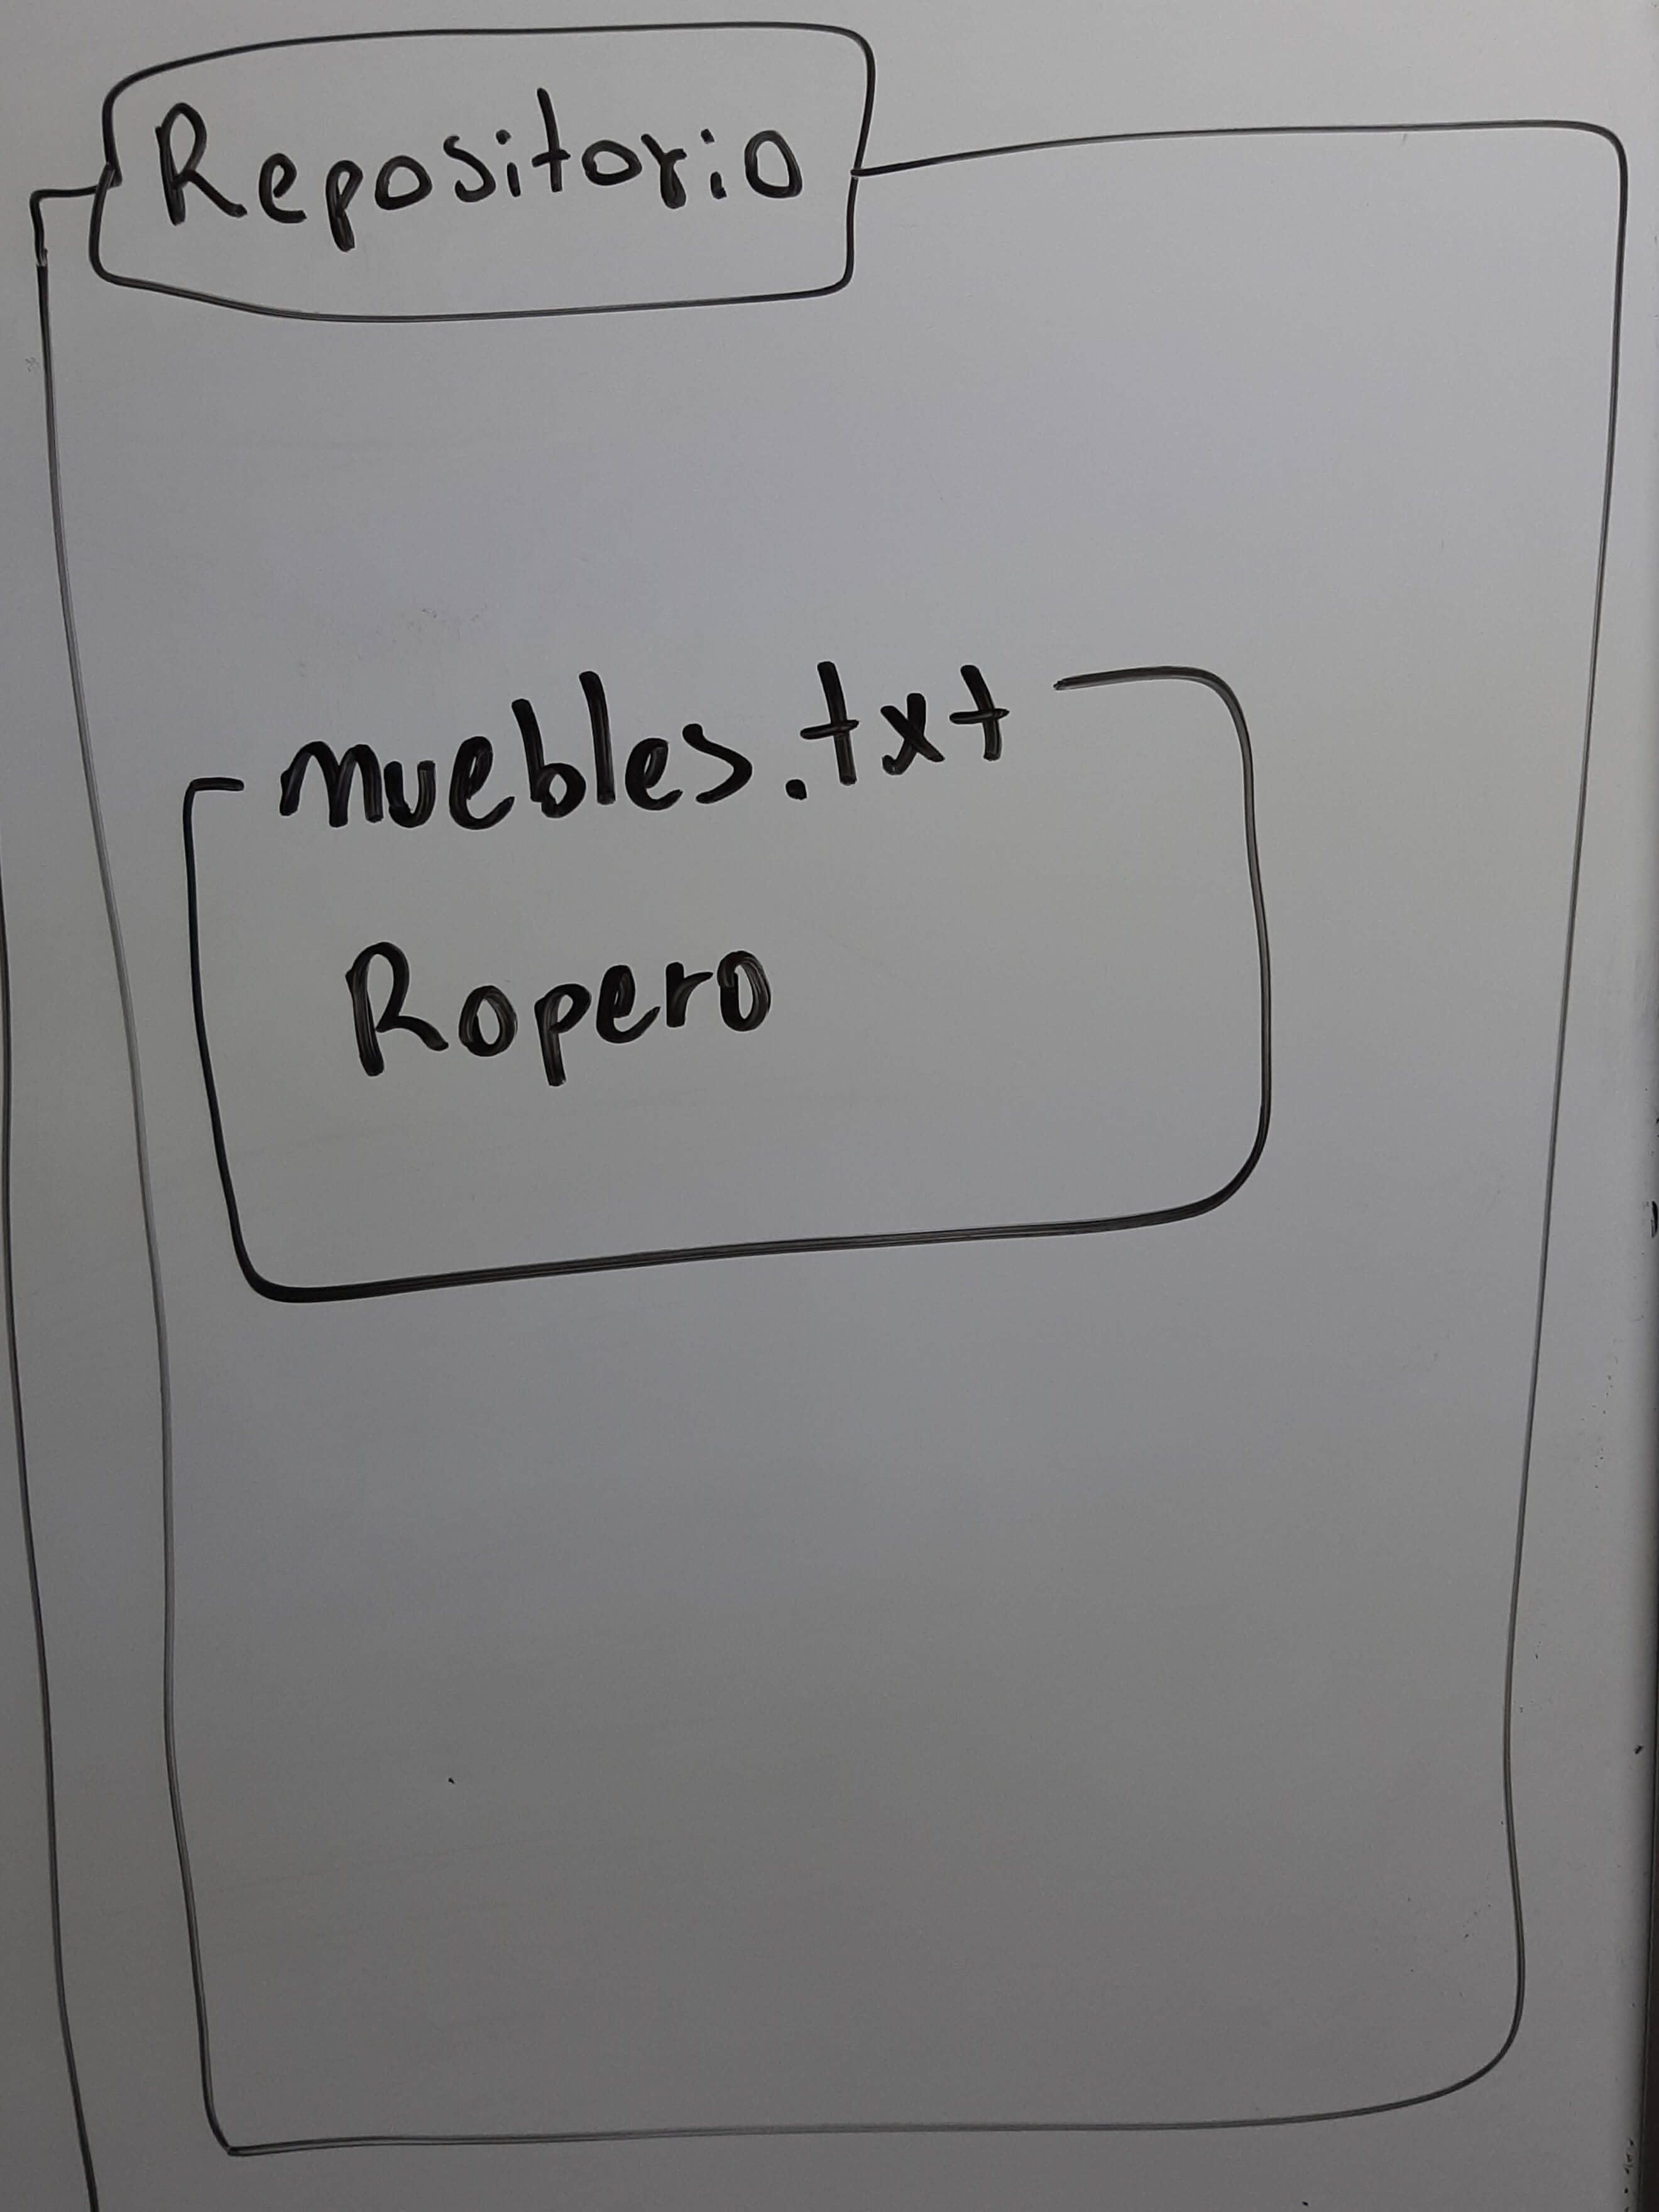 Repositorio
muebles.txt
Ropero